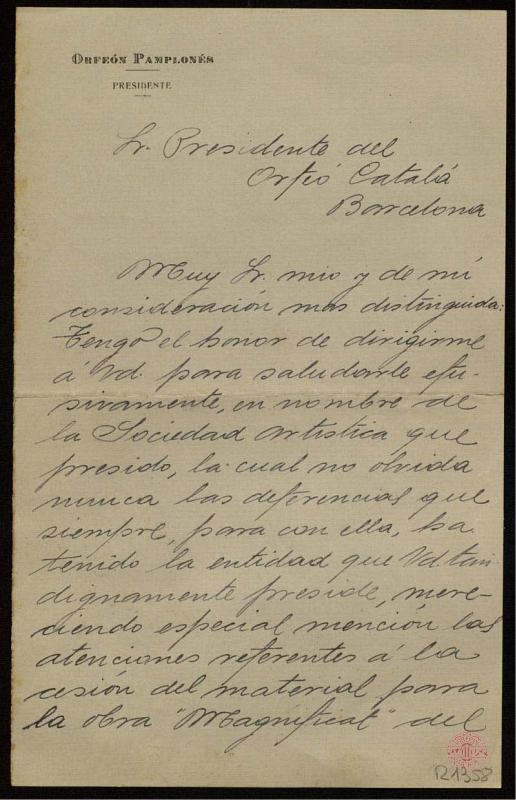 ORFEÓN PAMPLONÉS
PRESIDENTE
Sr. Presidente del
Orfeó Catalá
Barcelona
Muy Sr. mio y de mi
consideración mas distinguida:
Tengo el honor de dirigirme
á Vd. para saludarle efu-
sivamente, en nombre de
la Sociedad artistica que
presido, la cual no olvida
nunca las deferencias que
siempre, para con ella, ha
tenido la entidad que Vd tan
dignamente preside, mere-
ciendo especial mención las
atenciones referentes á la
cesión del material para
la obra "Magnificat" del
R1358